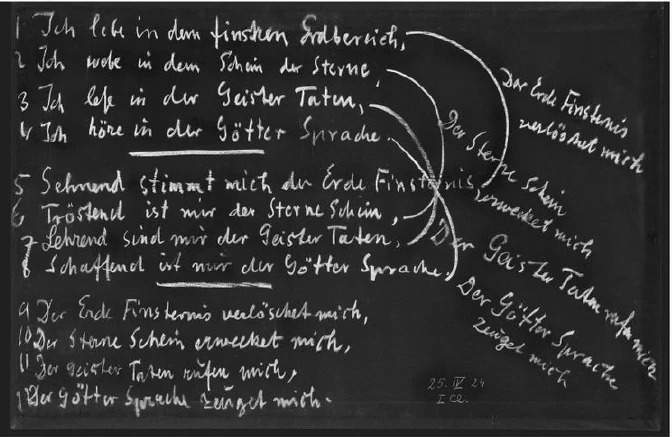 1 Ich lebe in dem finstren Erdbereich,
2 Ich webe in dem Schein der Sterne,
3 Ich lese in der Geister Taten,
4 Ich höre in der Götter Sprache.
5 Sehnend stimmt mich der Erde Finsternis,
6 Tröstend ist mir der Sterne Schein,
7 Lehrend sind mir der Geister Taten,
8 Schaffend ist mir der Götter Sprache,
9 Der Erde Finsternis verlöschet mich,
10 Der Sterne Schein erwecket mich,
11 Der Geister Taten rufen mich,
12 Der Götter Sprache zeuget mich.
Der Erde Finsternis
verlöschet mich
Der Sterne Schein
erwecket mich
Der Geister Taten rufen mich
Der Götter Sprache
zeuget mich
25. IV 24
I Cl.